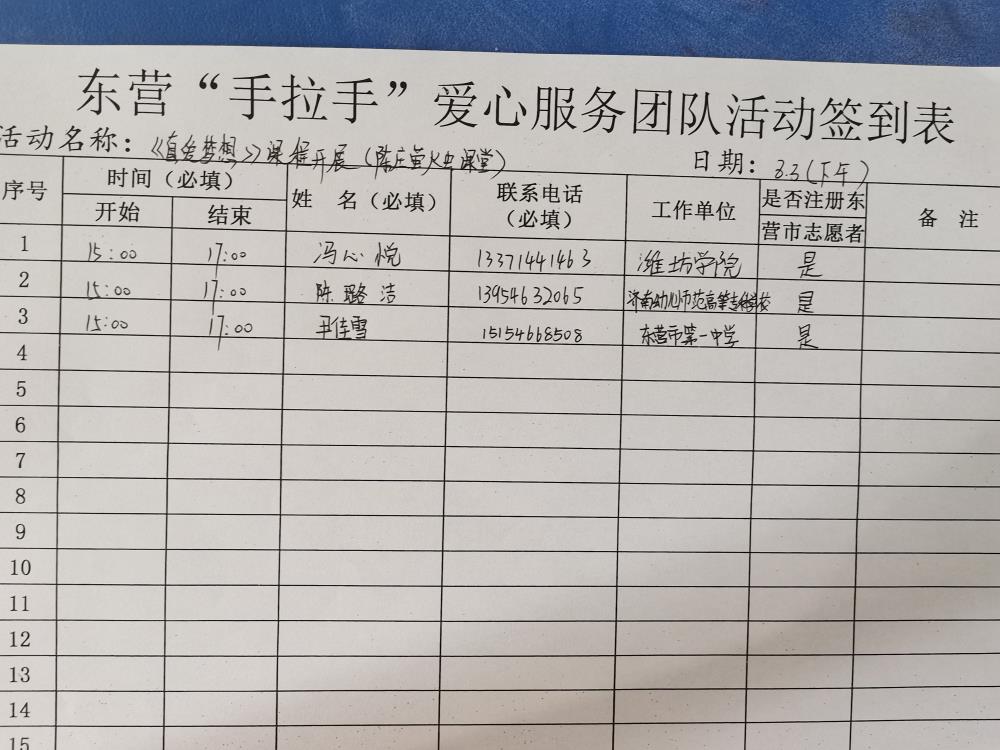 东营“手拉手”爱心服务团队活动签到表
活动名称：《自绘梦想》课程开展（陈庄萤火虫课堂） 日期：3.3（下午）
序号 时间（必填） 姓 名（必填） 联系电话（必填） 工作单位 是否注册东营市志愿者 备 注
开始 结束
1 15:00 17:00 冯心悦 13371441463 潍坊学院 是
2 15:00 17:00 陈璐洁 13954632065 济南幼儿师范高等专科学校 是
3 15:00 17:00 尹佳雪 15154668508 东营市第一中学 是
4
5
6
7
8
9
10
11
12
13
14
15